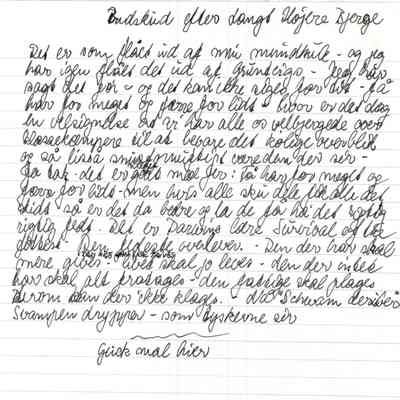 Indskud efter Langt Højere Bjerge
Det er som flået ud af min mundhule - og jeg
har igen flået det ud af - jeg har
sagt det før - og det kan ikke siges for tit - få
har for meget og færre for lidt - hvor er det dog
en velsignelse at vi har alle os velbjergede over
til at bevare det kølige overblik
og så lisså være dem der ser -
ja tak - det er gået med jer: få har for meget og
færre for lidt - men hvis alle sku' dele lik' alle det
lidt så er det da bedre og la' de få ha' det rigtig
rigtig fedt. Det er Darwins lære Survival of the
fittest - Den fedeste overlever. - Den der har skal
mere gives - livet skal jo leves - den der intet
har skal alt fratages - den fattige skal plages
derom kan der ikke klages. - Na Schwam derüber
Svampen drypper - som tyskerne sir
Guck mal hier